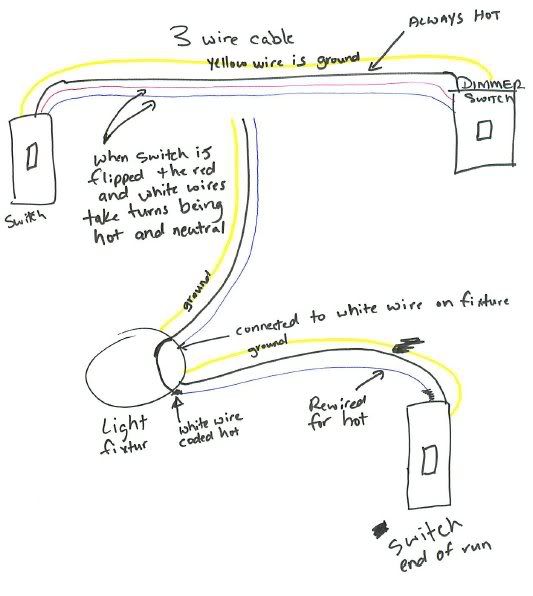 ALWAYS HOT
3 wire cable
Yellow wire is ground
DIMMER
SWITCH
When Switch is
flipped the red
and white wires
take turns being
hot and neutral
Switch
ground
connected to white wire on fixture
ground
Light
fixtur
White wire
coded hot
Rewired
for hot
Switch
end of run